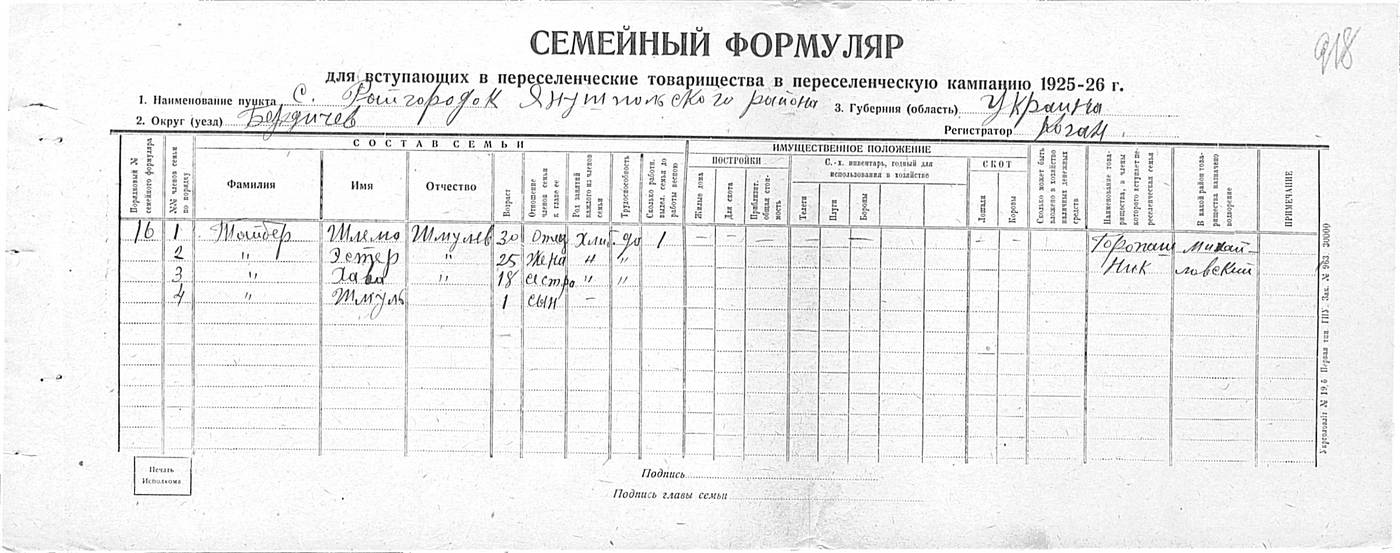 918
СЕМЕЙНЫЙ ФОРМУЛЯР
для вступающих в переселенческие товарищества в переселенческую кампанию 1925-26 г.
1. Наименование пункта с. Райгородок Янушпольского района 3. Губерния (область) Украина
2. Округ (уезд) Бердичев Регистратор Коган.
СОСТАВ СЕМЬИ ИМУЩЕСТВЕННОЕ ПОЛОЖЕНИЕ
ПОСТРОЙКИ С.-х. инвентарь, годный для использования в хозяйстве СКОТ
Порядковый № семейного формуляра №№ членов семьи по порядку Фамилия Имя Отчество Возраст Отношение членов семьи к главе ее Род занятий каждого из членов семьи Трудоспособность Сколько работн. выдел. семья до работы весною Жилые дома Для скота Приблизит. общая стоимость Телеги Плуги Бороны Лошади Коровы Сколько может быть вложено в хозяйство наличных денежных средств Наименование товарищества, в члены которого вступает переселенческая семья В какой район товарищества назначено водворение ПРИМЕЧАНИЕ
16 1 Тойбер Шлемо Шмулев 30 Отец Хлиб до 1 — — — — — — — —
2 " Эстер " 25 жена " "
3 " Хава " 18 сестра " "
4 " Шмуль 1 сын —
Михайловский
Печать Исполкома
Подпись
Подпись главы семьи
Первая тип. ГПУ. Зак. № 963 30000